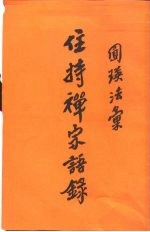 圓瑛法彙
住持禪宗語錄